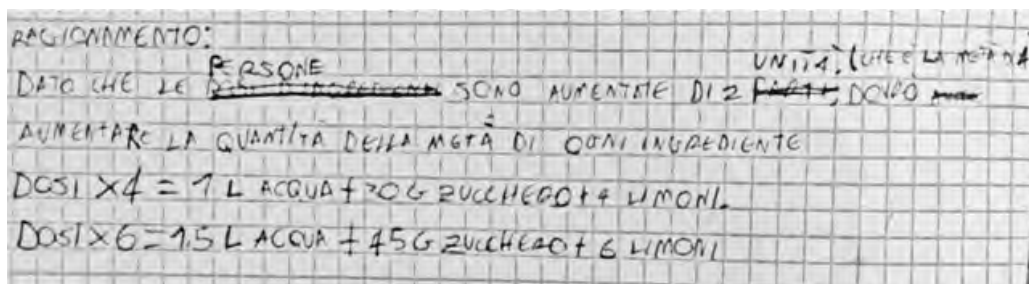 RAGIONAMENTO:
DATO CHE LE PERSONE SONO AUMENTATE DI 2 UNITÀ, (CHE È LA METÀ DI 4 DOVRÒ
AUMENTARE LA QUANTITÀ DELLA METÀ DI OGNI INGREDIENTE
DOSI X4 = 1 L ACQUA + 30 G ZUCCHERO + 4 LIMONI
DOSI X 6 = 1.5 L ACQUA + 45 G ZUCCHERO + 6 LIMONI